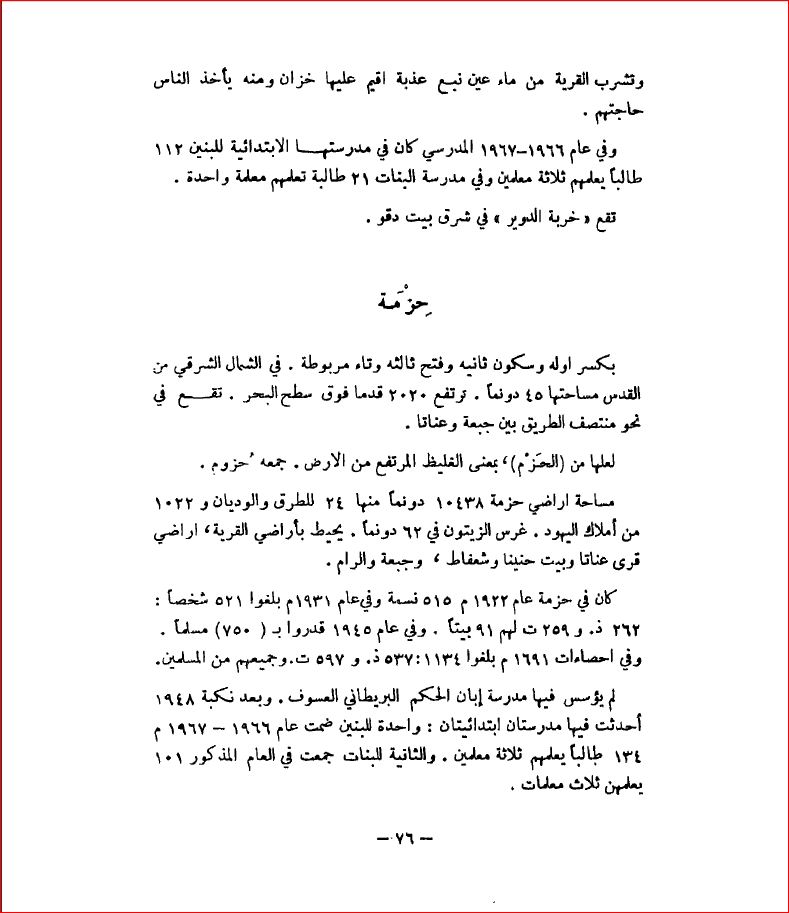 وتشرب القرية من ماء عين نبع عذبة اقيم عليها خزان ومنه يأخذ الناس
حاجتهم .
وفي عام ١٩٦٦–١٩٦٧ المدرسي كان في مدرستهـــا الابتدائية للبنين ١١٢
طالباً يعلمهم ثلاثة معلمين وفي مدرسة البنات ٢١ طالبة تعلمهم معلمة واحدة .
تقع « خربة الدوير » في شرق بيت دقو .
حِزْمَة
بكسر اوله وسكون ثانيه وفتح ثالثه وتاء مربوطة . في الشمال الشرقي من
القدس مساحتها ٤٥ دونماً . ترتفع ٢٠٢٠ قدما فوق سطح البحر . تقـــع في
نحو منتصف الطريق بين جبعة وعناتا .
لعلها من (الحَزْم)، بمعنى الغليظ المرتفع من الارض . جمعه حُزوم .
مساحة اراضي حزمة ١٠٤٣٨ دونماً منها ٢٤ للطرق والوديان و ١٠٢٢
من أملاك اليهود . غرس الزيتون في ٦٢ دونماً . يحيط بأراضي القرية، اراضي
قرى عناتا وبيت حنينا وشعفاط ، وجبعة والرام .
كان في حزمة عام ١٩٢٢ م ٥١٥ نسمة وفي عام ١٩٣١م بلغوا ٥٢١ شخصاً :
٢٦٢ ذ. و ٢٥٩ ت لهم ٩١ بيتاً . وفي عام ١٩٤٥ قدروا بـ ( ٧٥٠) مسلماً .
وفي احصاءات ١٦٩١ م بلغوا ١١٣٤:٥٣٧ ذ. و ٥٩٧ ت.وجميعهم من المسلمين.
لم يؤسس فيها مدرسة إبان الحكم البريطاني العسوف . وبعد نكبة ١٩٤٨
أحدثت فيها مدرستان ابتدائيتان : واحدة للبنين ضمت عام ١٩٦٦ – ١٩٦٧ م
١٣٤ طالباً يعلمهم ثلاثة معلمين . والثانية للبنات جمعت في العام المذكور ١٠١
يعلمهن ثلاث معلمات .
– ٧٦ –